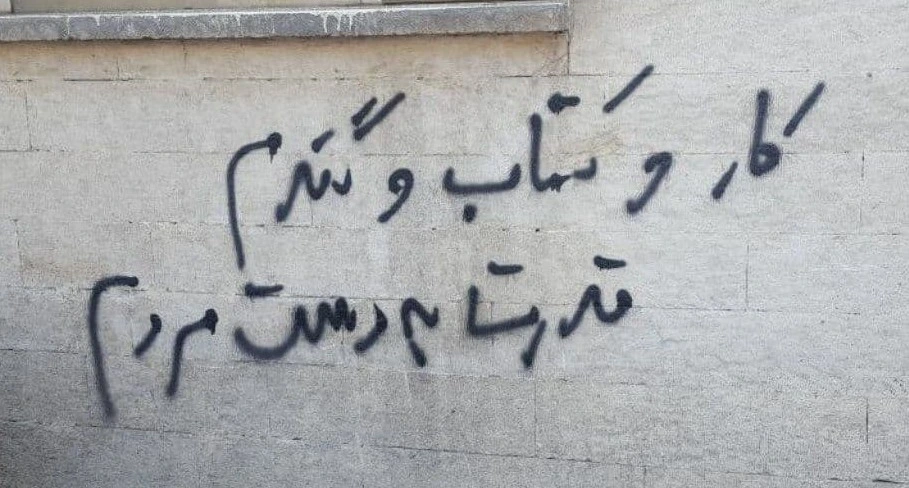 کار و کتاب و گندم
قدرتا به دست مردم